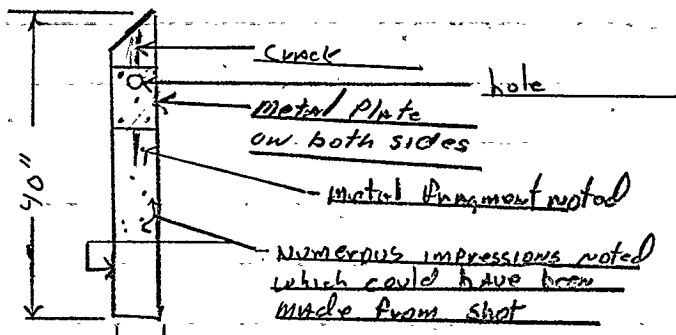 Crack
hole
Metal Plate
on both sides
40"
Metal fragment noted
Numerous impressions noted
which could have been
made from shot